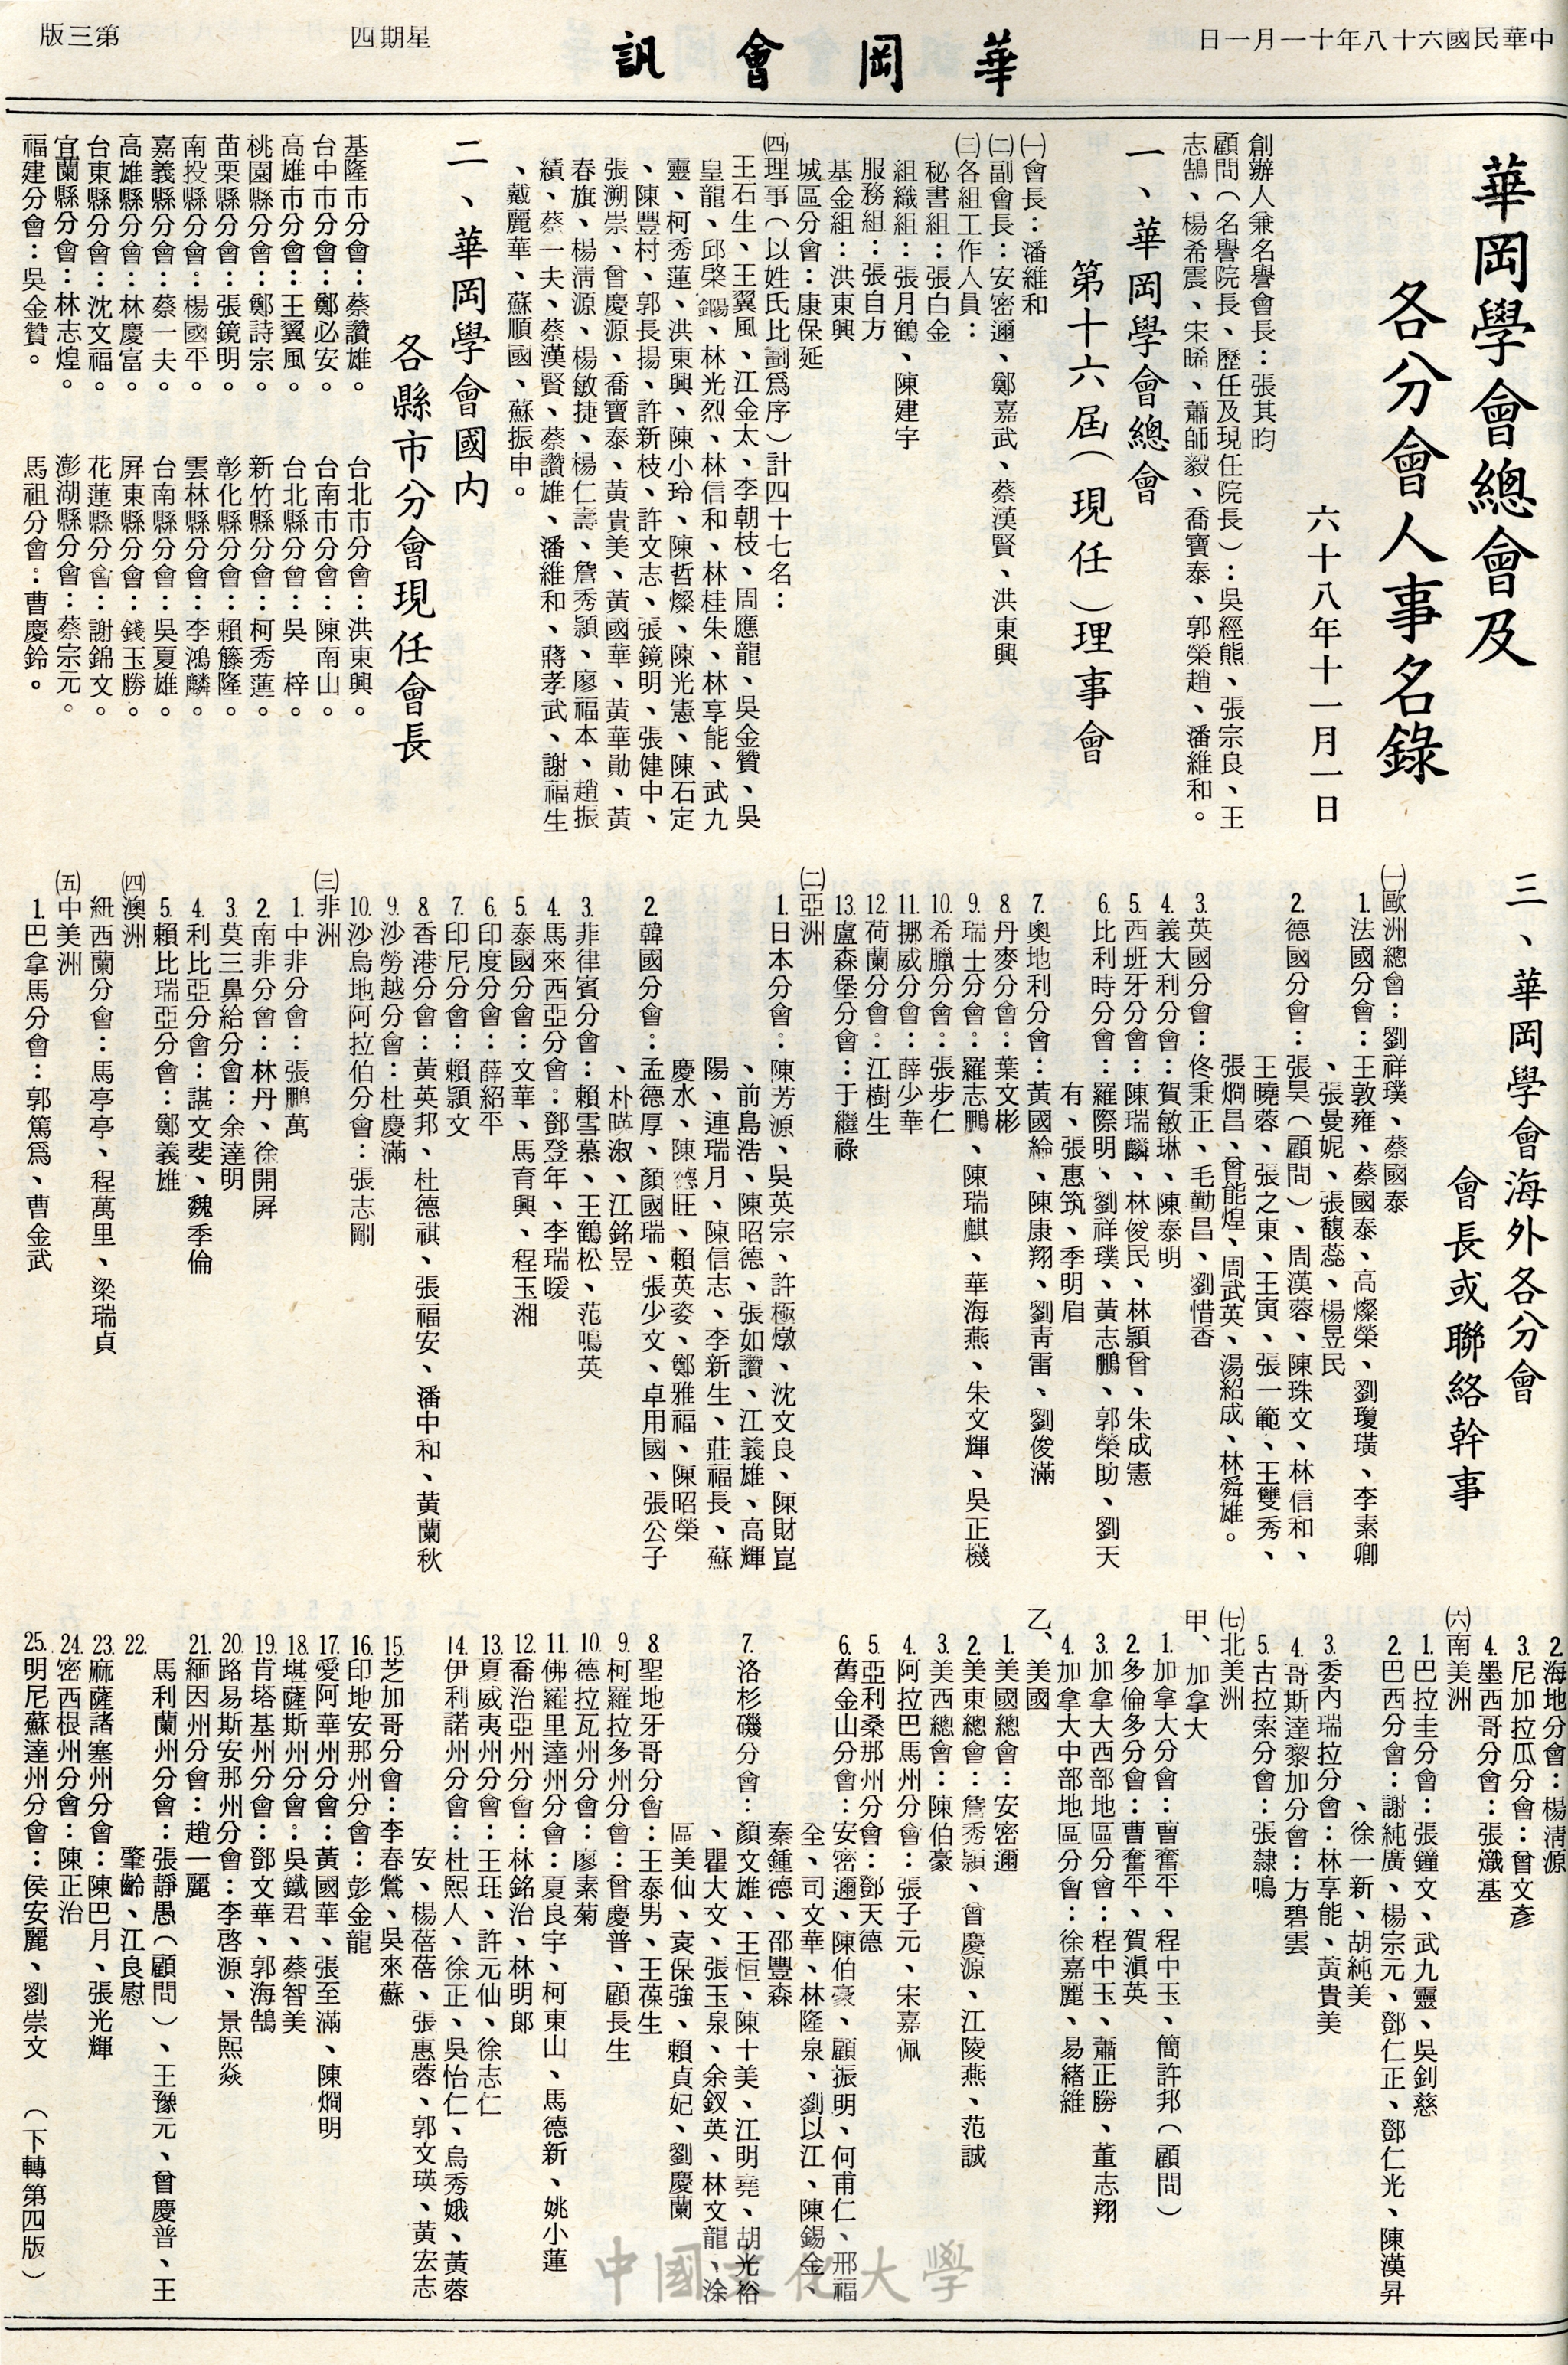 中華民國六十八年十一月一日
華岡會訊
星期四
第三版
華岡學會總會及
各分會人事名錄
六十八年十一月一日
創辦人兼名譽會長：張其昀
顧問（名譽院長、歷任及現任院長）：吳經熊、張宗良、王
志鵠、楊希震、宋晞、蕭師毅、喬寶泰、郭榮趙、潘維和。
一、華岡學會總會
第十六屆（現任）理事會
㈠會長：潘維和
㈡副會長：安密邇、鄭嘉武、蔡漢賢、洪東興
㈢各組工作人員：
秘書組：張白金
組織組：張月鶴、陳建宇
服務組：張自方
基金組：洪東興
城區分會：康保延
㈣理事（以姓氏比劃為序）計四十七名：
王石生、王翼風、江金太、李朝枝、周應龍、吳金贊、吳
皇龍、邱榮鐊、林光烈、林信和、林桂朱、林享能、武九
靈、柯秀蓮、洪東興、陳小玲、陳哲燦、陳光憲、陳石定
、陳豐村、郭長揚、許新枝、許文志、張鏡明、張健中、
張溯崇、曾慶源、喬寶泰、黃貴美、黃國華、黃華勛、黃
春旗、楊清源、楊敏捷、楊仁壽、詹秀穎、廖福本、趙振
績、蔡一夫、蔡漢賢、蔡讚雄、潘維和、蔣孝武、謝福生
、戴麗華、蘇順國、蘇振申。
二、華岡學會國內
各縣市分會現任會長
基隆市分會：蔡讚雄。　台北市分會：洪東興。
台中市分會：鄭必安。　台南市分會：陳南山。
高雄市分會：王翼風。　台北縣分會：吳　梓。
桃園縣分會：鄭詩宗。　新竹縣分會：柯秀蓮。
苗栗縣分會：張鏡明。　彰化縣分會：賴籐隆。
南投縣分會：楊國平。　雲林縣分會：李鴻麟。
嘉義縣分會：蔡一夫。　台南縣分會：吳夏雄。
高雄縣分會：林慶富。　屏東縣分會：錢玉勝。
台東縣分會：沈文福。　花蓮縣分會：謝錦文。
宜蘭縣分會：林志煌。　澎湖縣分會：蔡宗元。
福建分會：吳金贊。　馬祖分會：曹慶鈴。
三、華岡學會海外各分會
會長或聯絡幹事
㈠歐洲總會：劉祥璞、蔡國泰
1.法國分會：王敦雍、蔡國泰、高燦榮、劉瓊璜、李素卿
、張曼妮、張馥蕊、楊昱民
2.德國分會：張昊（顧問）、周漢蓉、陳珠文、林信和、
王曉蓉、張之東、王寅、張一範、王雙秀、
張烱昌、曾能煌、周武英、湯紹成、林舜雄。
3.英國分會：佟秉正、毛勤昌、劉惜香
4.義大利分會：賀敏琳、陳泰明
5.西班牙分會：陳瑞麟、林俊民、林穎曾、朱成憲
6.比利時分會：羅際明、劉祥璞、黃志鵬、郭榮助、劉天
有、張惠筑、季明眉
7.奧地利分會：黃國綸、陳康翔、劉青雷、劉俊滿
8.丹麥分會：葉文彬
9.瑞士分會：羅志鵬、陳瑞麒、華海燕、朱文輝、吳正機
10.希臘分會：張步仁
11.挪威分會：薛少華
12.荷蘭分會：江樹生
13.盧森堡分會：于繼祿
㈡亞洲
1.日本分會：陳芳源、吳英宗、許極燉、沈文良、陳財崑
、前島浩、陳昭德、張如讚、江義雄、高輝
陽、連瑞月、陳信志、李新生、莊福長、蘇
慶水、陳德旺、賴英姿、鄭雅福、陳昭榮
2.韓國分會：孟德厚、顏國瑞、張少文、卓用國、張公子
、朴暎淑、江銘昱
3.菲律賓分會：賴雪慕、王鶴松、范鳴英
4.馬來西亞分會：鄧登年、李瑞暖
5.泰國分會：文華、馬育興、程玉湘
6.印度分會：薛紹平
7.印尼分會：賴穎文
8.香港分會：黃英邦、杜德祺、張福安、潘中和、黃蘭秋
9.沙勞越分會：杜慶滿
10.沙烏地阿拉伯分會：張志剛
㈢非洲
1.中非分會：張鵬萬
2.南非分會：林丹、徐開屏
3.莫三鼻給分會：余達明
4.利比亞分會：諶文斐、魏季倫
5.賴比瑞亞分會：鄭義雄
㈣澳洲
紐西蘭分會：馬亭亭、程萬里、梁瑞貞
㈤中美洲
1.巴拿馬分會：郭篤為、曹金武
2.海地分會：楊清源
3.尼加拉瓜分會：曾文彥
4.墨西哥分會：張熾基
㈥南美洲
1.巴拉圭分會：張鐘文、武九靈、吳釗慈
2.巴西分會：謝純廣、楊宗元、鄧仁正、鄧仁光、陳漢昇
、徐一新、胡純美
3.委內瑞拉分會：林享能、黃貴美
4.哥斯達黎加分會：方碧雲
5.古拉索分會：張隸鳴
㈦北美洲
甲、加拿大
1.加拿大分會：曹奮平、程中玉、簡許邦（顧問）
2.多倫多分會：曹奮平、賀滇英
3.加拿大西部地區分會：程中玉、蕭正勝、董志翔
4.加拿大中部地區分會：徐嘉麗、易緒維
乙、美國
1.美國總會：安密邇
2.美東總會：詹秀穎、曾慶源、江陵燕、范誠
3.美西總會：陳伯豪
4.阿拉巴馬州分會：張子元、宋嘉佩
5.亞利桑那州分會：鄧天德
6.舊金山分會：安密邇、陳伯豪、顧振明、何甫仁、邢福
全、司文華、林隆泉、劉以江、陳錫金、
秦鍾德、邵豐森
7.洛杉磯分會：顏文雄、王恒、陳十美、江明堯、胡光裕
、瞿大文、張玉泉、余釵英、林文龍、涂
區美仙、袁保強、賴貞妃、劉慶蘭
8.聖地牙哥分會：王泰男、王葆生
9.柯羅拉多州分會：曾慶普、顧長生
10.德拉瓦州分會：廖素菊
11.佛羅里達州分會：夏良宇、柯東山、馬德新、姚小蓮
12.喬治亞州分會：林銘治、林明郎
13.夏威夷州分會：王珏、許元仙、徐志仁
14.伊利諾州分會：杜熙人、徐正、吳怡仁、烏秀娥、黃蓉
安、楊蓓蓓、張惠蓉、郭文瑛、黃宏志
15.芝加哥分會：李春鶯、吳來蘇
16.印地安那州分會：彭金龍
17.愛阿華州分會：黃國華、張至滿、陳烱明
18.堪薩斯州分會：吳鐵君、蔡智美
19.肯塔基州分會：鄧文華、郭海鵠
20.路易斯安那州分會：李啓源、景熙焱
21.緬因州分會：趙一麗
22.馬利蘭州分會：張靜愚（顧問）、王豫元、曾慶普、王
肇齡、江良慰
23.麻薩諸塞州分會：陳巴月、張光輝
24.密西根州分會：陳正治
25.明尼蘇達州分會：侯安麗、劉崇文
（下轉第四版）
中國文化大學